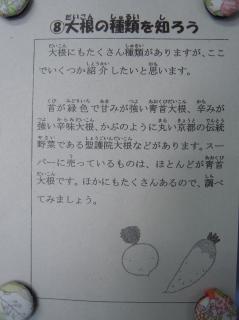 ⑧大根の種類を知ろう
大根にもたくさん種類がありますが、ここ
でいくつか紹介したいと思います。
首が緑色で甘みが強い青首大根、辛みが
強い辛味大根、かぶのように丸い京都の伝統
野菜である聖護院大根などがあります。スー
パーに売っているものは、ほとんどが青首
大根です。ほかにもたくさんあるので、調べ
てみましょう。